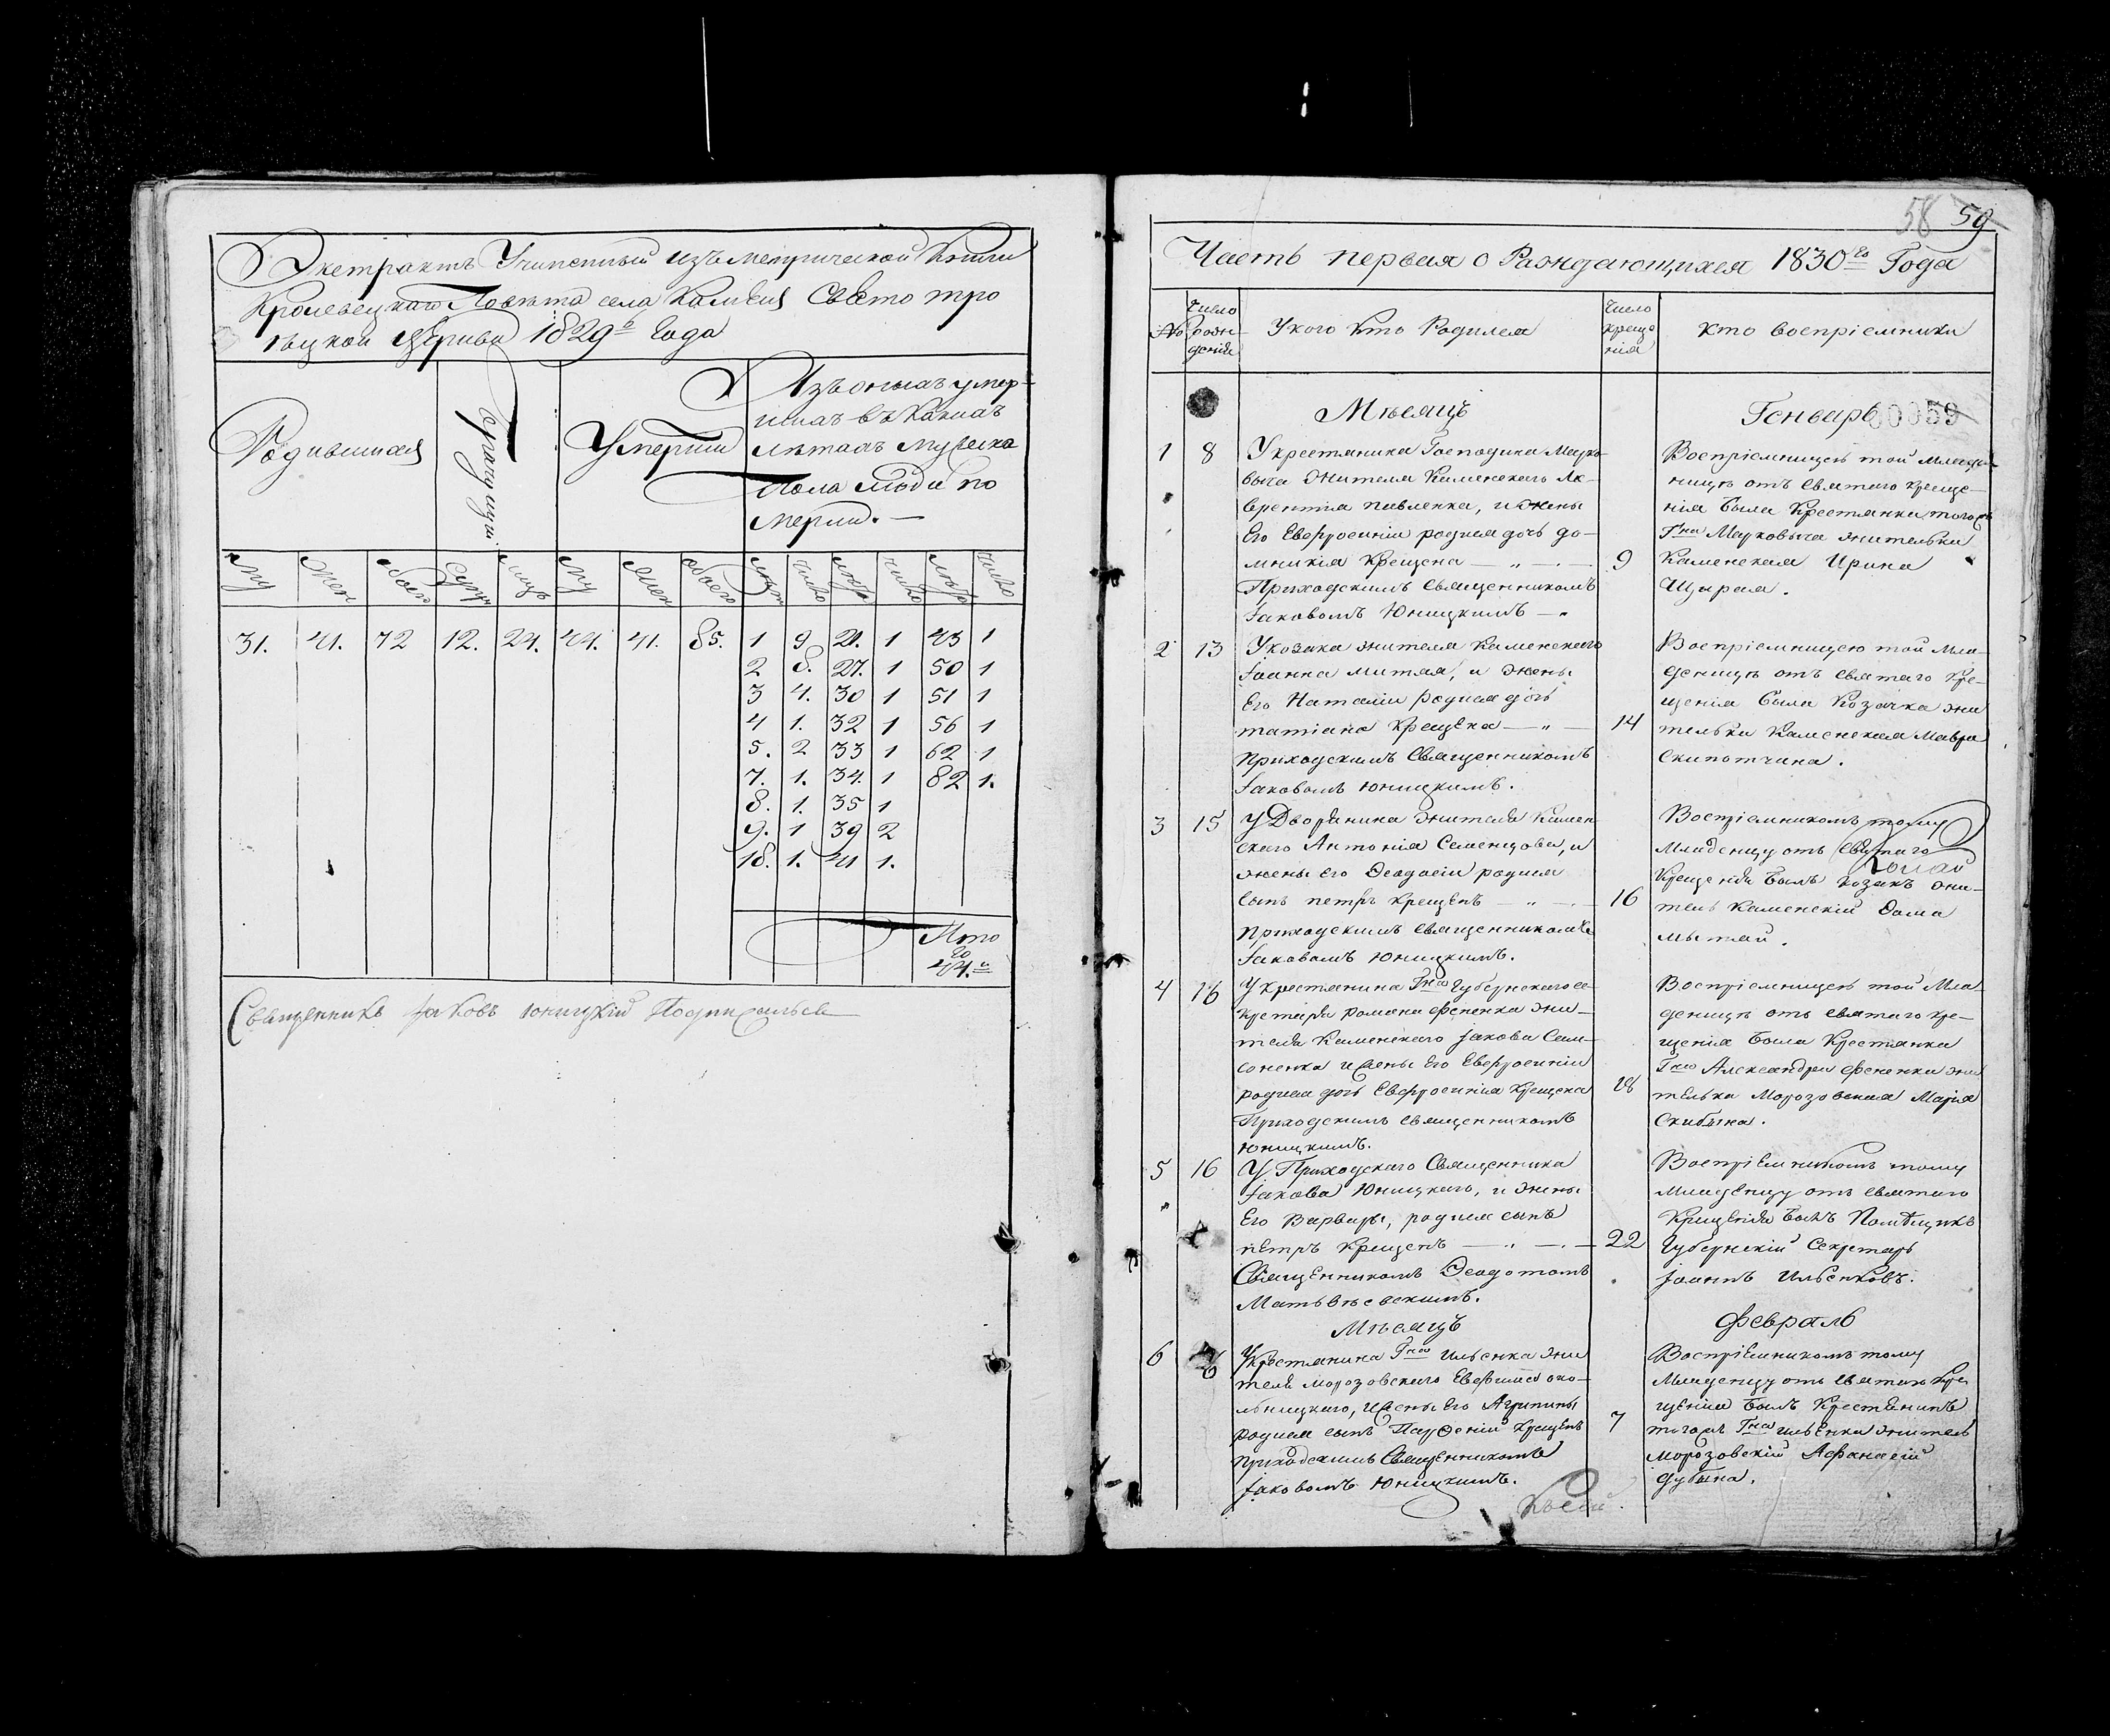 Экстрактъ Учиненный изъ метрической Книги
Кролевецкаго Повѣта села Каменя Свято тро
ицкой Церкви 1829го Года
Родившихся
Умерши
Изъ оныхъ умер-
шихъ въ какихъ
лѣтахъ мужеска
Пола люди по
мерли. —
му
жен
обоего
лицъ
му
жен
обоего
число
число
число
31. 41. 72 12. 24. 44. 41. 85. 1 9 21. 1 43 1
2 8. 27. 1 50 1
3 4. 30 1 51 1
4 1. 32 1 56 1
5. 2 33 1 62 1
7. 1. 34. 1 82 1.
8. 1. 35 1
9. 1 39 2
18. 1. 41 1.
Ито
го
44.
Священникъ Іаковъ Юницкій Подписался
58 59
Часть первая о Раждающихся 1830го Года
№
Число
рож-
денія
У кого кто Родился
Число
креще
нія
Кто воспріемники
Мѣсяцъ
Генварь
00059
1 8 У крестянина Господина Марко-
вича жителя Каменскаго Ла-
врентия павленка, и жены
Его Евфросиніи родися дочь до-
мникія Крещена — „ — 9
Приходскимъ Священникомъ
Іаковомъ Юницкимъ —„
Воспріемницею той младе-
ницѣ отъ Святаго Креще-
нія Была Крестянка тогожъ
Гна Марковича жителька
Каменская Ирина
Щирая.
2 13 У козака жителя Каменскаго
Іоанна митяя, и жены
Его Наталіи родися дочь
татіана Крещена — „ — 14
Приходскимъ Священникомъ
Іаковомъ Юницкимъ.
Воспріемницею той мла-
деницѣ отъ Святаго Кре-
щенія Была Козачка жи
телька Каменская Мавра
Скипотчина.
3 15 У Дворянина жителя Камен
скаго Антонія Семенцова, и
жены его Феодосіи родися
сынъ петръ Крещенъ — „ — 16
Приходскимъ священникомъ
Іаковомъ Юницкимъ.
Воспріемникомъ тому
Младенцу отъ Святаго
Крещенія Былъ козакъ жи-
тель Каменскій Фома
митяй.
4 16 У крестянина Гна Губернскаго се-
кретаря романа Фененка жи-
теля Каменскаго Іакова Сам-
соненка и жены Его Евфросиніи
родися дочь Евфросинія Крещена 18
Приходскимъ священникомъ
Юницкимъ.
Воспріемницею той Мла-
деницѣ отъ святаго кре-
щенія Была Крестянка
Гна Александра Фененка жи
телька Морозовская Марія
Скибина.
5 16 У Приходскаго Священника
Іакова Юницкаго, и жены
Его Варвары, родися сынъ
петръ Крещенъ — „ — 22
Священникомъ Феодотомъ
Матвѣевскимъ.
Воспріемникомъ тому
Младенцу отъ святаго
Крещенія Былъ Помѣщикъ
Губернскій Секретарь
Іоаннъ Ильенковъ.
Мѣсяцъ
Февраль
6 6 У крестянина Гна Ильенка жи
теля Морозовскаго Евфимія око-
льницкаго, и жены Его Агрипины
родися сынъ Парфеній Крещенъ 7
приходскимъ Священникомъ
Іаковомъ Юницкимъ.
Воспріемникомъ тому
Младенцу отъ Святаго Кре
щенія Былъ Крестянинъ
тогожъ Гна ильенка житель
морозовскій Афанасій
дубина.